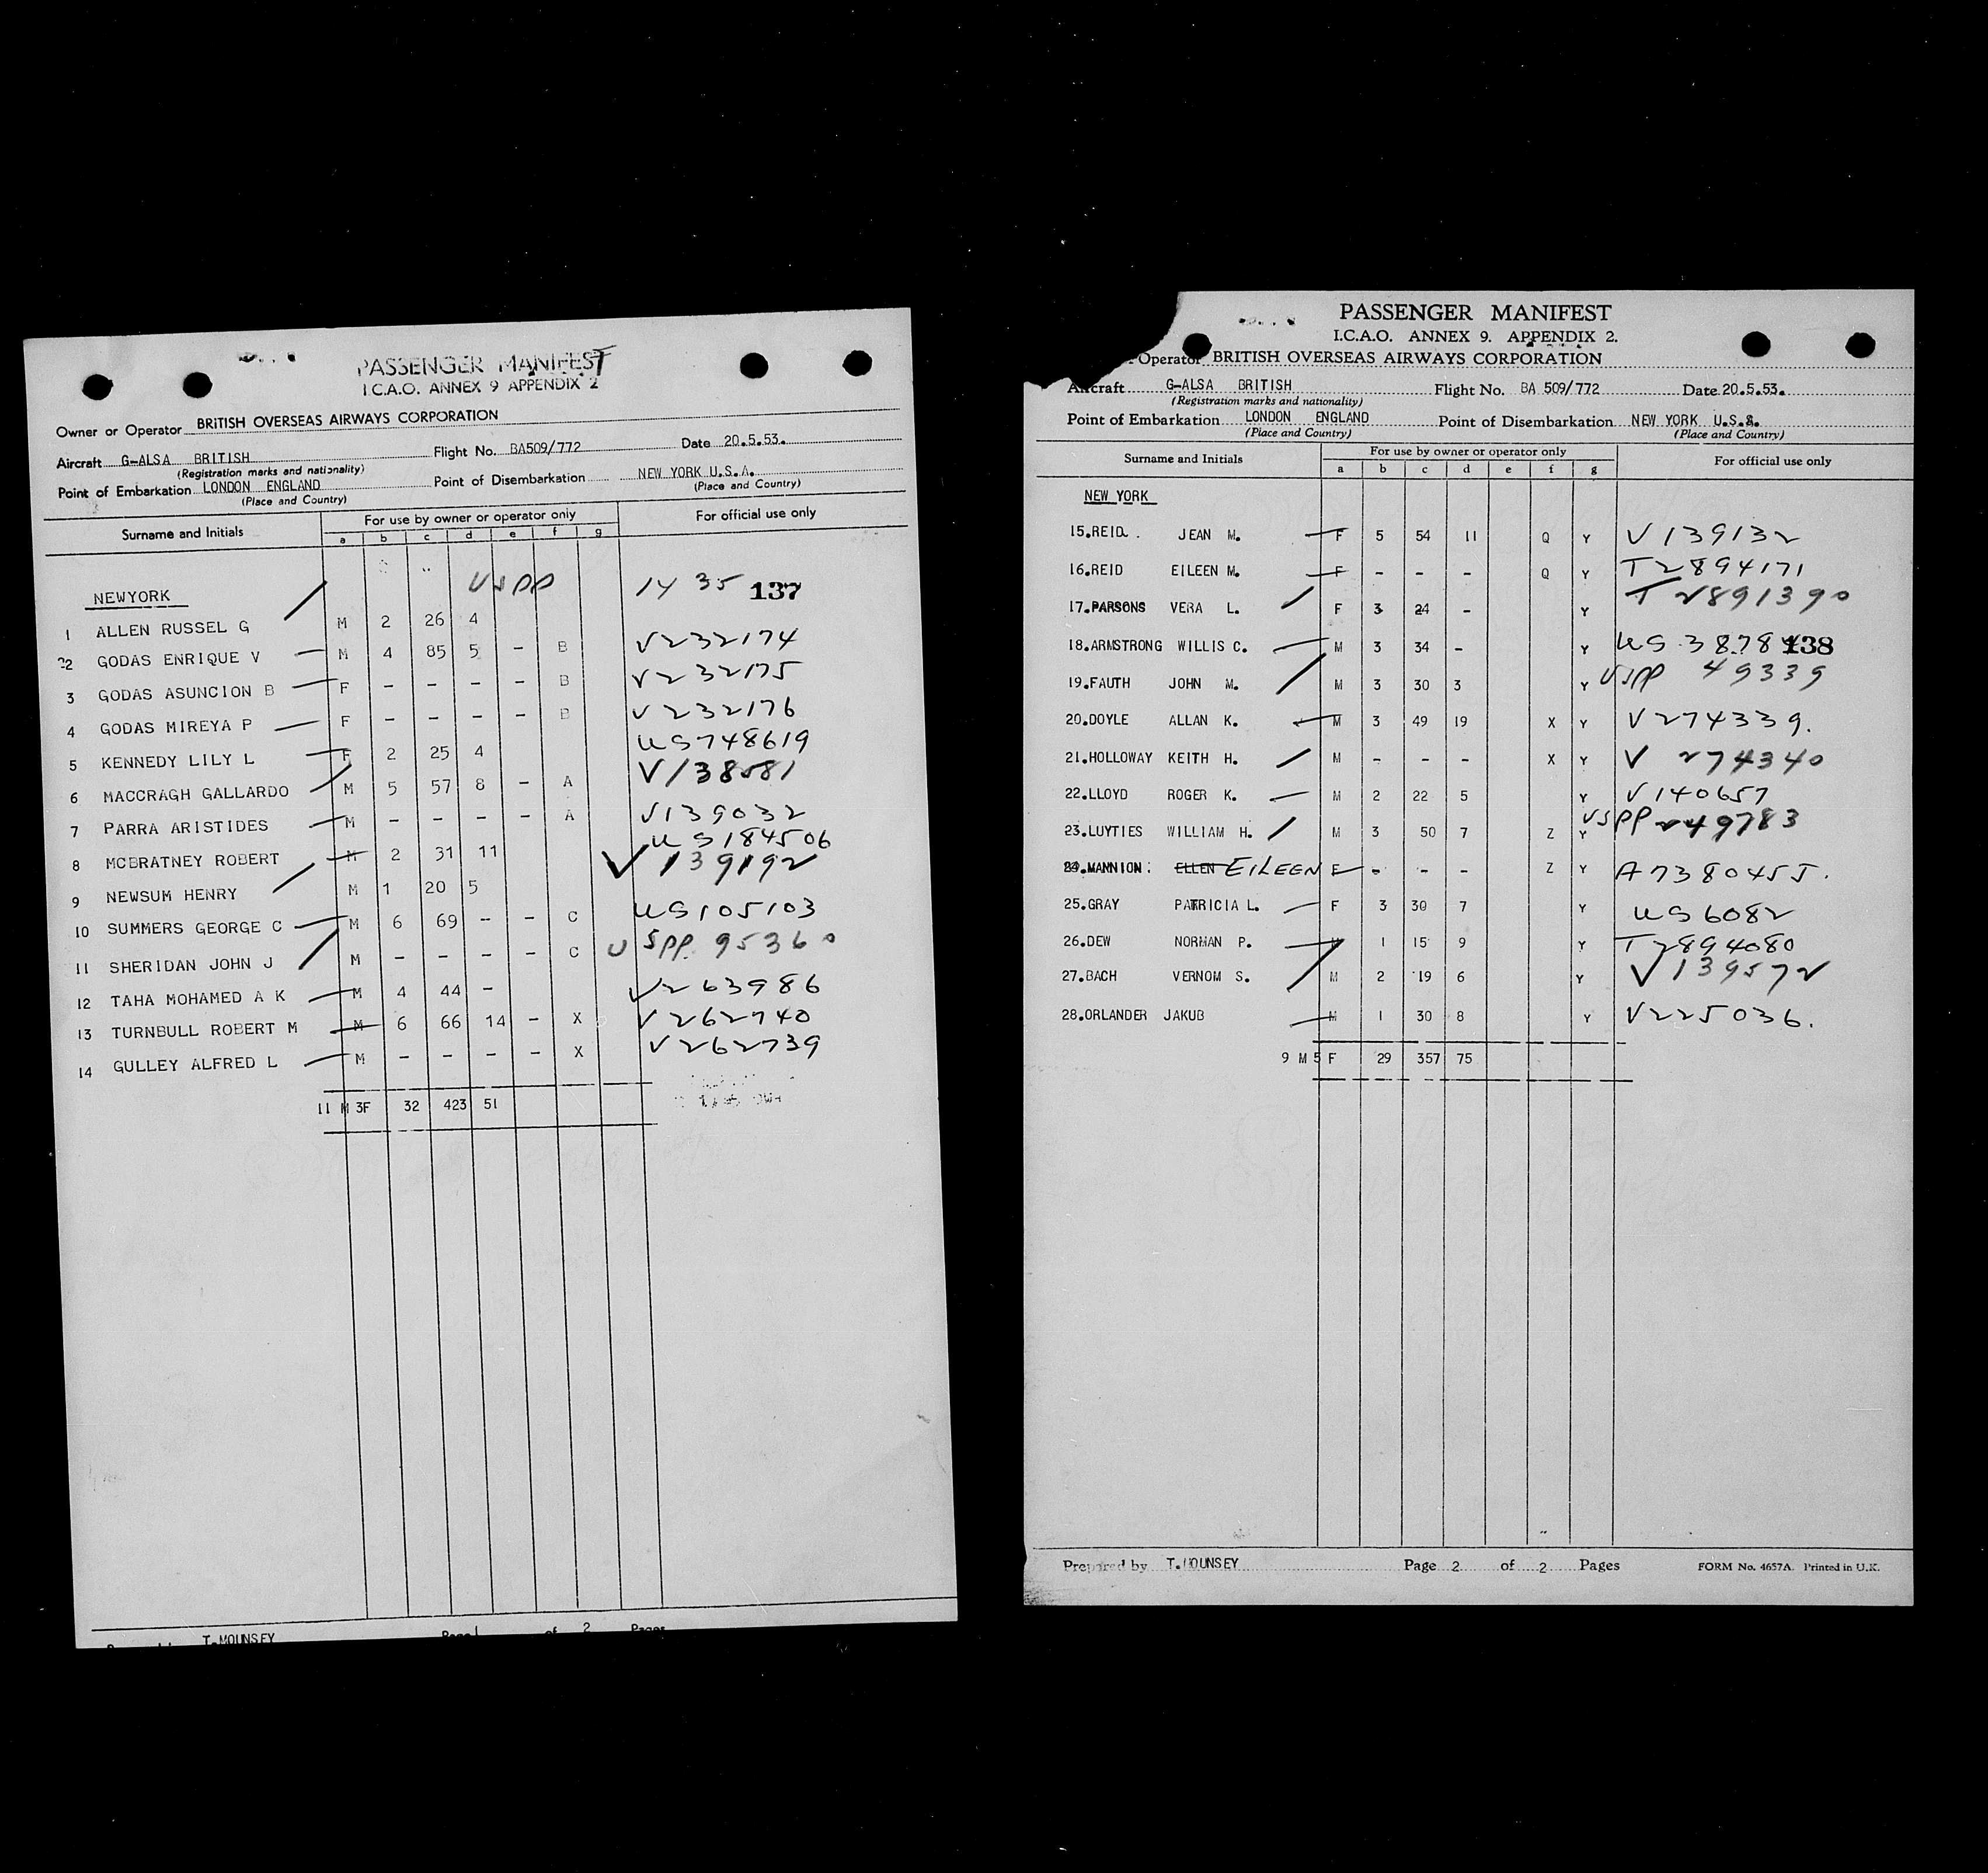 PASSENGER MANIFEST
I.C.A.O. ANNEX 9 APPENDIX 2
Owner or Operator BRITISH OVERSEAS AIRWAYS CORPORATION
Aircraft G-ALSA BRITISH Flight No. BA509/772 Date 20.5.53.
(Registration marks and nationality)
Point of Embarkation LONDON ENGLAND Point of Disembarkation NEW YORK U.S.A.
(Place and Country) (Place and Country)
Surname and Initials For use by owner or operator only For official use only
a b c d e f g
NEWYORK
1 ALLEN RUSSEL G M 2 26 4 USPP 14 35 137
2 GODAS ENRIQUE V M 4 85 5 - B V232174
3 GODAS ASUNCION B F - - - - B V232175
4 GODAS MIREYA P F - - - - B V232176
5 KENNEDY LILY L F 2 25 4 US748619
6 MACCRAGH GALLARDO M 5 57 8 - A V138581
7 PARRA ARISTIDES M - - - - A V139032
8 MCBRATNEY ROBERT M 2 31 11 US184506
9 NEWSUM HENRY M 1 20 5 V139192
10 SUMMERS GEORGE C M 6 69 - - C US105103
11 SHERIDAN JOHN J M - - - - C USPP 95360
12 TAHA MOHAMED A K M 4 44 - V263986
13 TURNBULL ROBERT M M 6 66 14 - X V262740
14 GULLEY ALFRED L M - - - - X V262739
11 M 3F 32 423 51
T.MOUNSEY Page 1 of 2 Pages
PASSENGER MANIFEST
I.C.A.O. ANNEX 9. APPENDIX 2.
Operator BRITISH OVERSEAS AIRWAYS CORPORATION
Aircraft G-ALSA BRITISH Flight No. BA 509/772 Date 20.5.53.
(Registration marks and nationality)
Point of Embarkation LONDON ENGLAND Point of Disembarkation NEW YORK U.S.A.
(Place and Country) (Place and Country)
Surname and Initials For use by owner or operator only For official use only
a b c d e f g
NEW YORK
15.REID. JEAN M. F 5 54 11 Q Y V139132
16.REID EILEEN M. F - - - Q Y T2894171
17.PARSONS VERA L. F 3 24 - Y T2891390
18.ARMSTRONG WILLIS C. M 3 34 - Y US 3878 138
19.FAUTH JOHN M. M 3 30 3 Y USPP 49339
20.DOYLE ALLAN K. M 3 49 19 X Y V274339.
21.HOLLOWAY KEITH H. M - - - X Y V 274340
22.LLOYD ROGER K. M 2 22 5 Y V140657
23.LUYTIES WILLIAM H. M 3 50 7 Z Y USPP 249783
24.MANNION. ELLEN EILEEN F - - - Z Y A7380455.
25.GRAY PATRICIA L. F 3 30 7 Y US6082
26.DEW NORMAN P. M 1 15 9 Y T2894080
27.BACH VERNOM S. M 2 19 6 Y V139572
28.ORLANDER JAKUB M 1 30 8 Y V225036.
9 M 5 F 29 357 75
Prepared by T.MOUNSEY Page 2 of 2 Pages FORM No. 4657A. Printed in U.K.